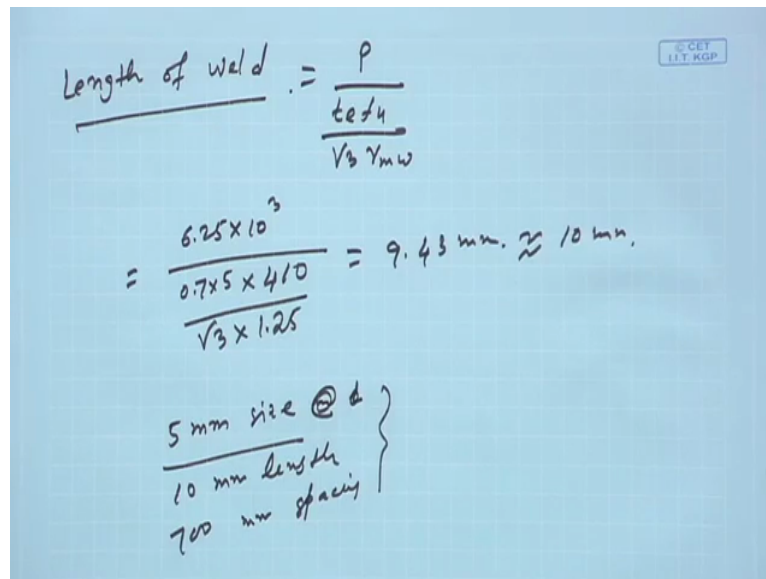 © CET
I.I.T. KGP
Length of weld . = P
te fu
√3 γmw
= 6.25 × 10³
0.7×5 × 410
√3 × 1.25
= 9.43 mm. ≈ 10 mm.
5 mm size @
10 mm length
700 mm spacing